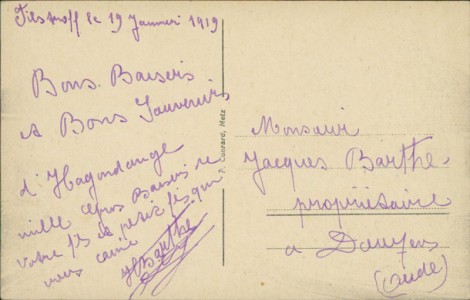 Filstroff le 19 Janvier 1919
Bons Baisers
et Bons Souvenirs
d'Hagondange
mille gros Baisers de
votre fils et petit fils qui
vous aime
HBarthe
P. Cuorard, Metz
Monsieur
Jacques Barthe
propriétaire
a
(Aude)